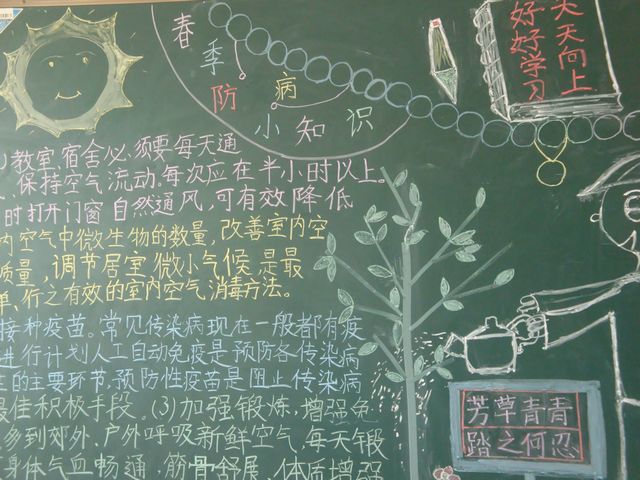 春季防病小知识
好好学习
天天向上
)教室宿舍必须要每天通
保持空气流动。每次应在半小时以上。
时打开门窗自然通风,可有效降低
内空气中微生物的数量,改善室内空
质量,调节居室微小气候,是最
单、行之有效的室内空气消毒方法。
接种疫苗。常见传染病现在一般都有疫
进行计划人工自动免疫是预防各传染病
主的主要环节,预防性疫苗是阻止传染病
最佳积极手段。(3)加强锻炼,增强免
多到郊外、户外呼吸新鲜空气,每天锻
身体气血畅通,筋骨舒展,体质增强
芳草青青
踏之何忍